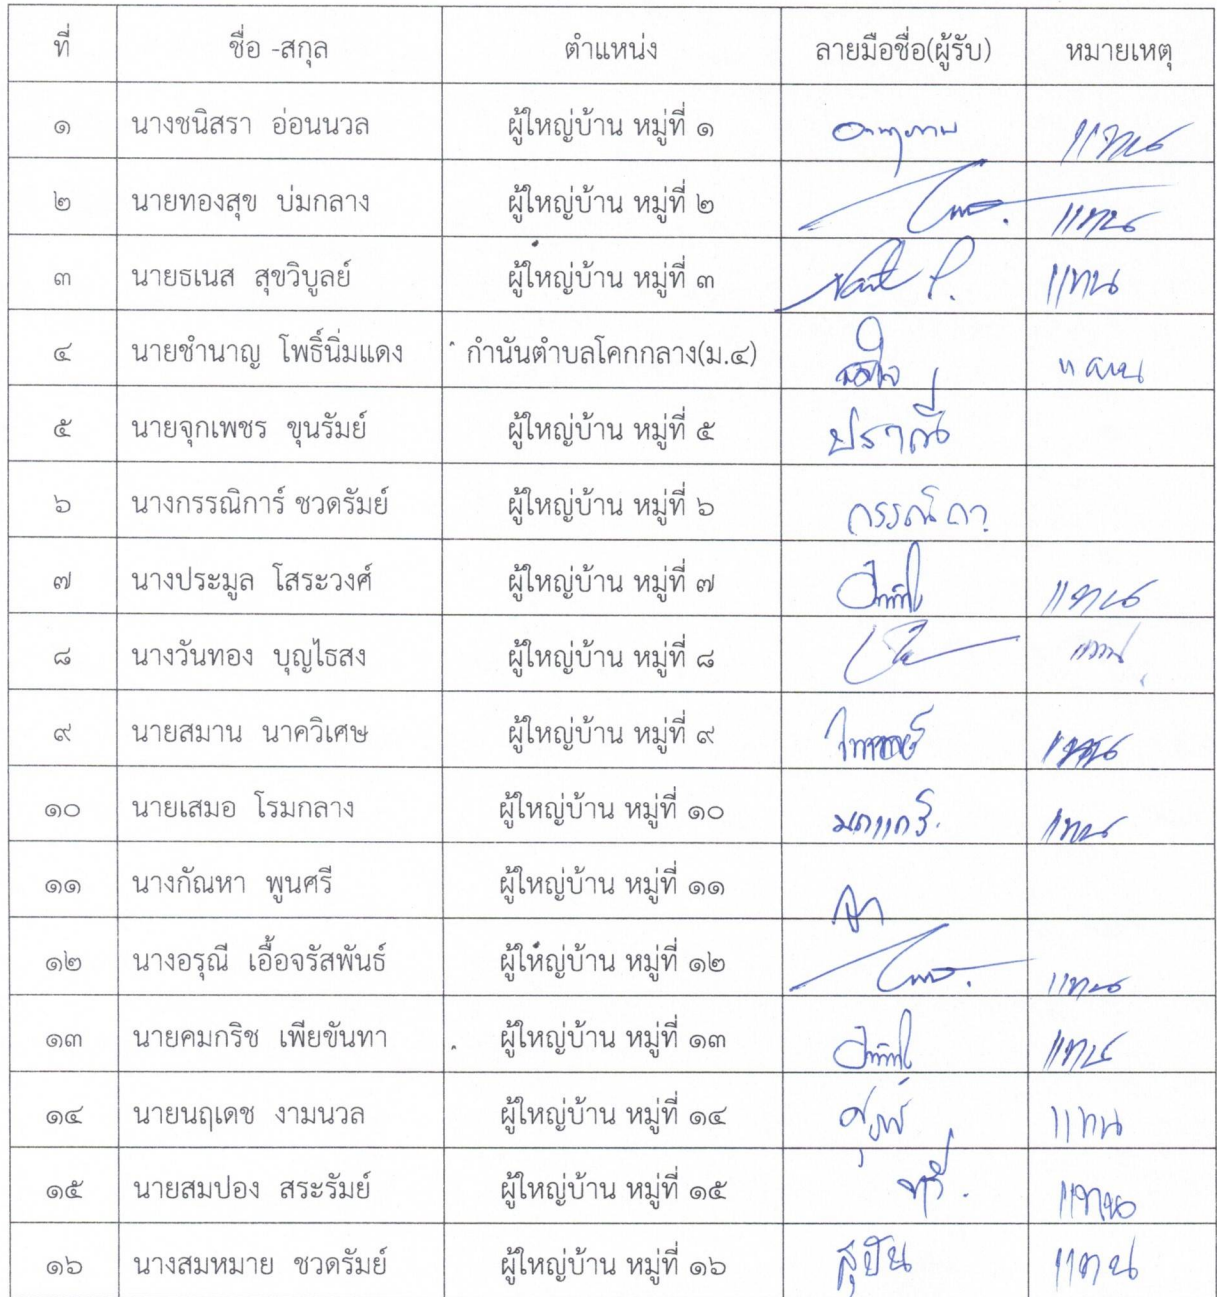 ที่ ชื่อ -สกุล ตำแหน่ง ลายมือชื่อ(ผู้รับ) หมายเหตุ
๑ นางชนิสรา อ่อนนวล ผู้ใหญ่บ้าน หมู่ที่ ๑ แทน
๒ นายทองสุข บ่มกลาง ผู้ใหญ่บ้าน หมู่ที่ ๒ แทน
๓ นายธเนส สุขวิบูลย์ ผู้ใหญ่บ้าน หมู่ที่ ๓ แทน
๔ นายชำนาญ โพธิ์นิ่มแดง กำนันตำบลโคกกลาง(ม.๔) แทน
๕ นายจุกเพชร ขุนรัมย์ ผู้ใหญ่บ้าน หมู่ที่ ๕ ปราณี
๖ นางกรรณิการ์ ชวดรัมย์ ผู้ใหญ่บ้าน หมู่ที่ ๖
๗ นางประมูล โสระวงศ์ ผู้ใหญ่บ้าน หมู่ที่ ๗ แทน
๘ นางวันทอง บุญไธสง ผู้ใหญ่บ้าน หมู่ที่ ๘ แทน
๙ นายสมาน นาควิเศษ ผู้ใหญ่บ้าน หมู่ที่ ๙ แทน
๑๐ นายเสมอ โรมกลาง ผู้ใหญ่บ้าน หมู่ที่ ๑๐ แทน
๑๑ นางกัณหา พูนศรี ผู้ใหญ่บ้าน หมู่ที่ ๑๑
๑๒ นางอรุณี เอื้อจรัสพันธ์ ผู้ใหญ่บ้าน หมู่ที่ ๑๒ แทน
๑๓ นายคมกริช เพียขันทา ผู้ใหญ่บ้าน หมู่ที่ ๑๓ แทน
๑๔ นายนฤเดช งามนวล ผู้ใหญ่บ้าน หมู่ที่ ๑๔ แทน
๑๕ นายสมปอง สระรัมย์ ผู้ใหญ่บ้าน หมู่ที่ ๑๕ แทน
๑๖ นางสมหมาย ชวดรัมย์ ผู้ใหญ่บ้าน หมู่ที่ ๑๖ สุปัน แทน